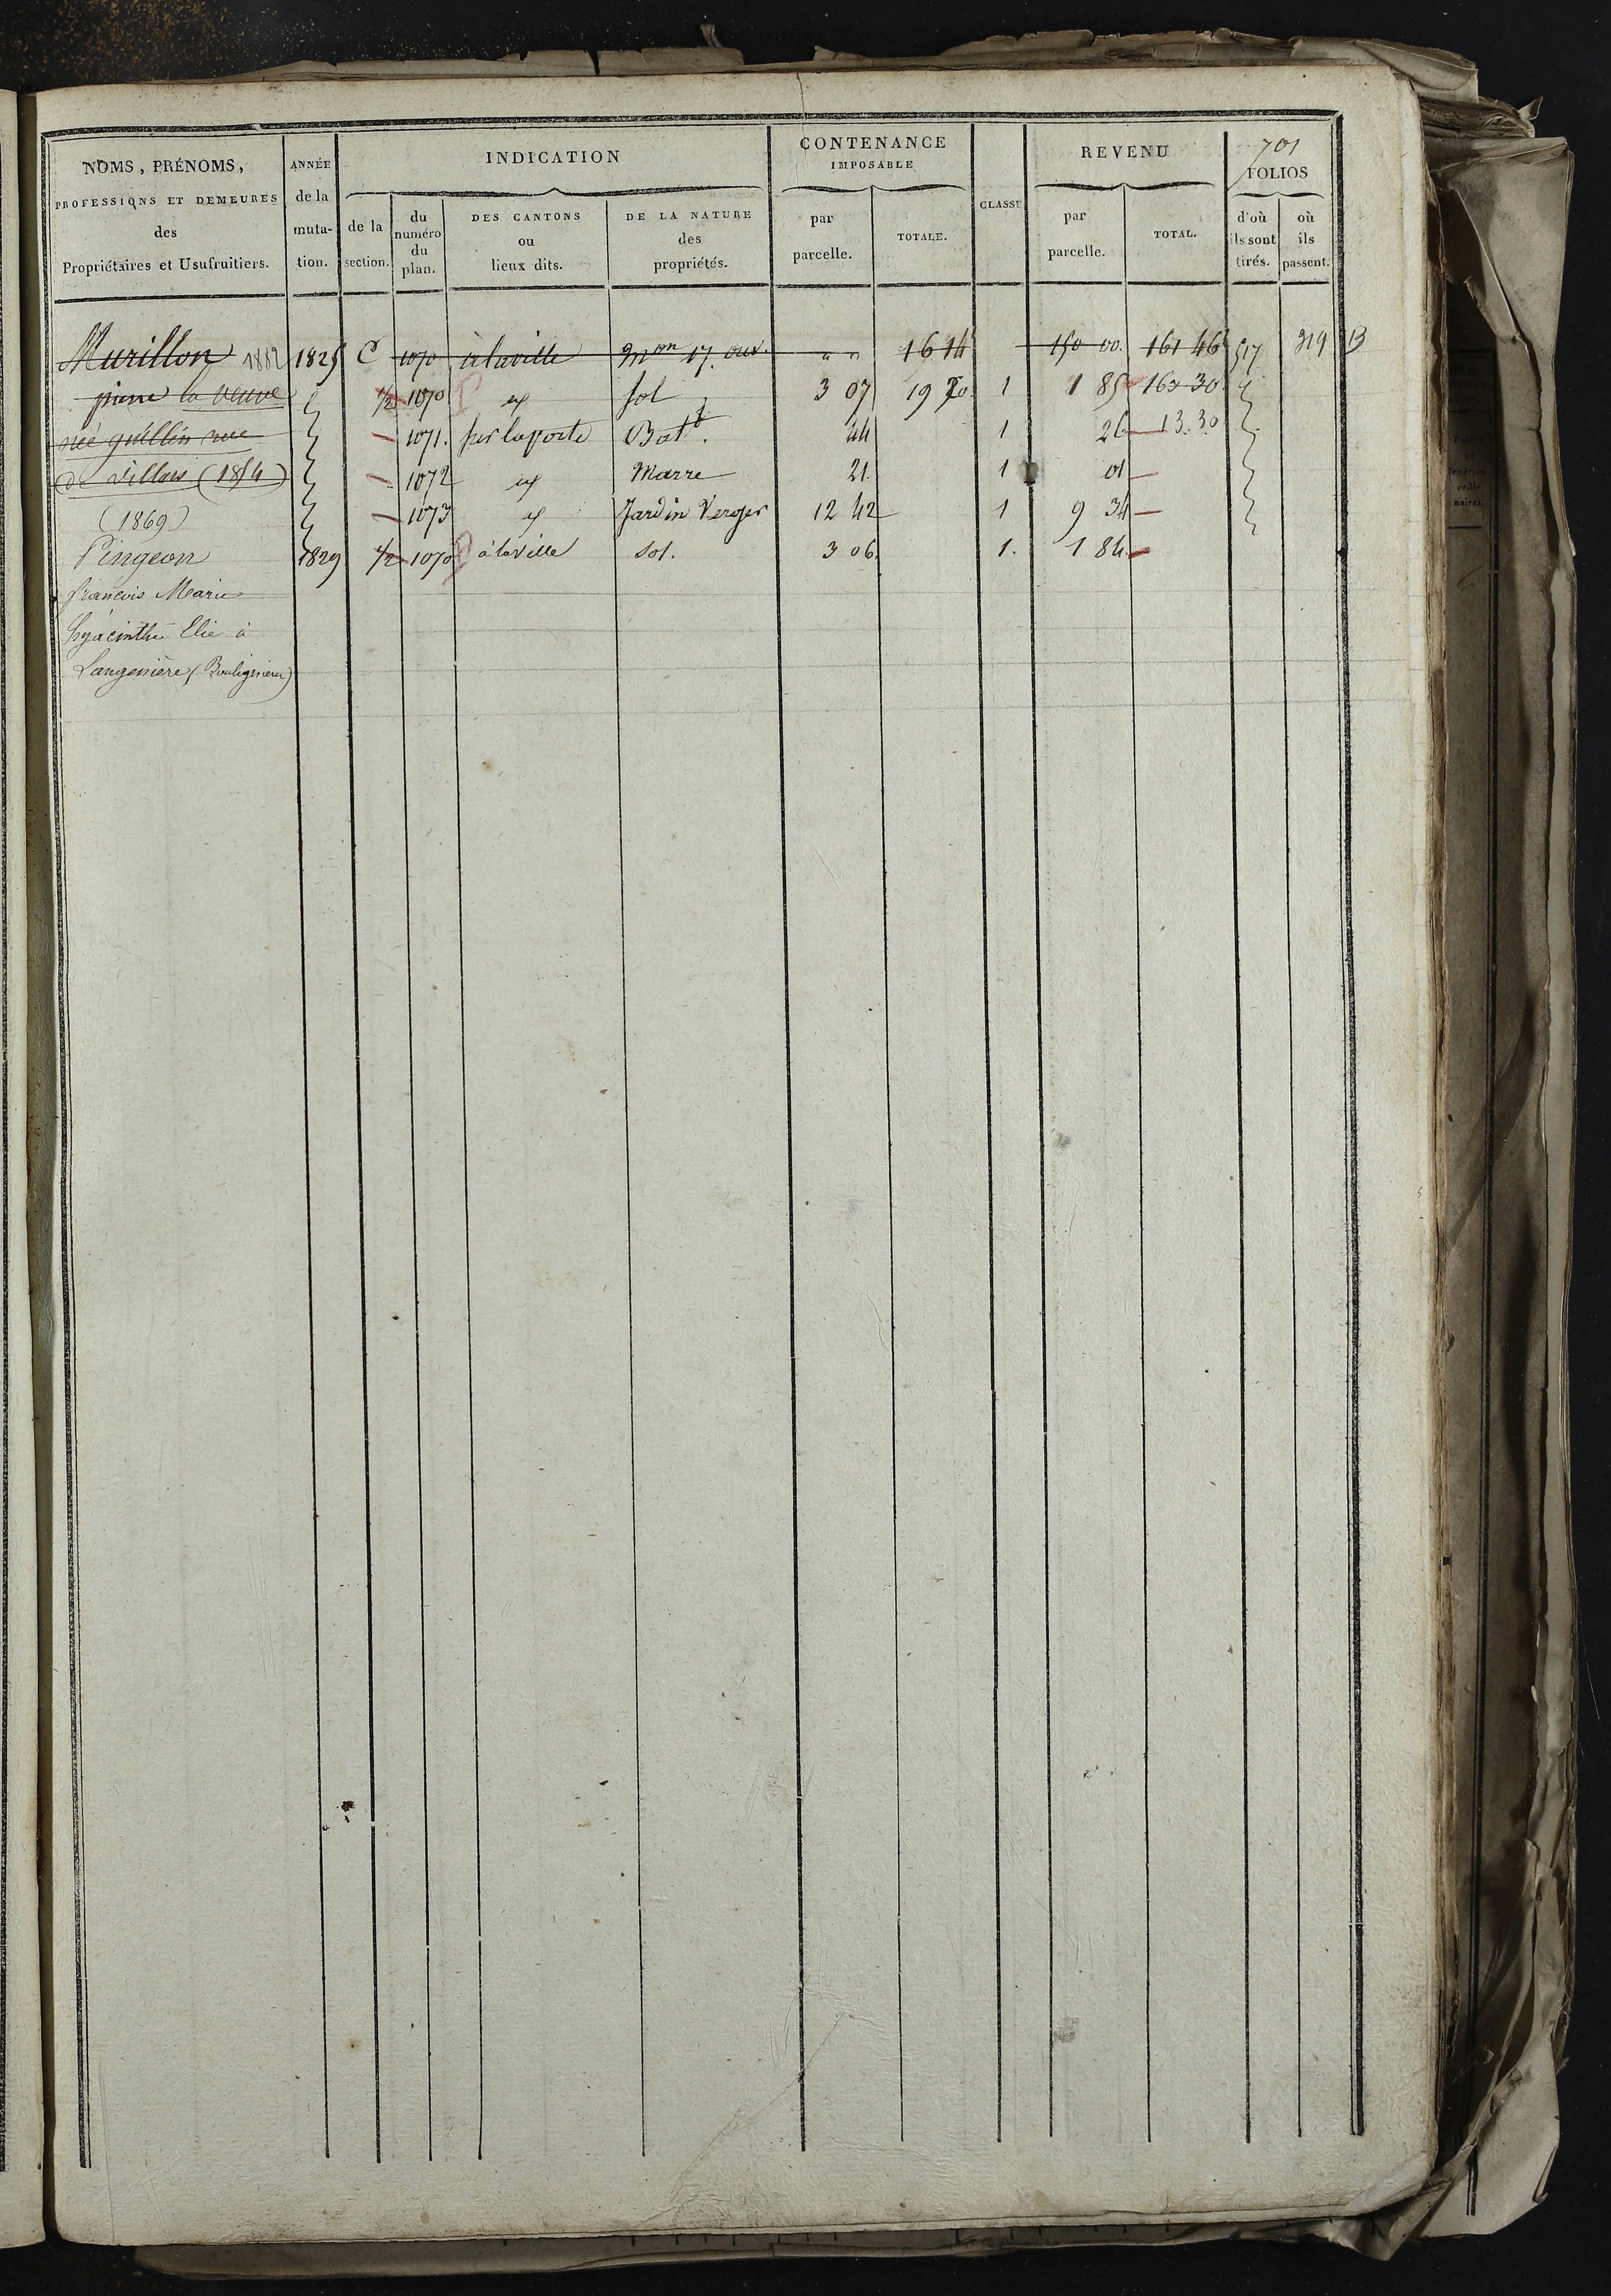 701
NOMS, PRÉNOMS, PROFESSIONS ET DEMEURES des Propriétaires et Usufruitiers.
ANNÉE de la muta-tion.
INDICATION
de la section.
du numéro du plan.
DES CANTONS ou lieux dits.
DE LA NATURE des propriétés.
CONTENANCE IMPOSABLE
par parcelle.
TOTALE.
CLASSE
REVENU
par parcelle.
TOTAL.
FOLIOS
d'où ils sont tirés.
où ils passent.
Murillon 1882 1825 C 1070 à la ville 17. ouv. " " 16 14 150 00. 161 46 517 319 13
pierre la veuve 1/2 1070 sol 3 07 19 20 1 1 85 163 30
née guillin rue 1071. sur la porte Bat 44 1 26 13.30
de villars (1854) 1072 Marre 21. 1 01
(1869) 1073 Jardin Verger 12 42 1 9 34
Pingeon 1829 1/2 1070 à la ville sol. 3 06 1. 1 84
francois Marie
hyacinthe Elie à
Langenière (Bouligneux)